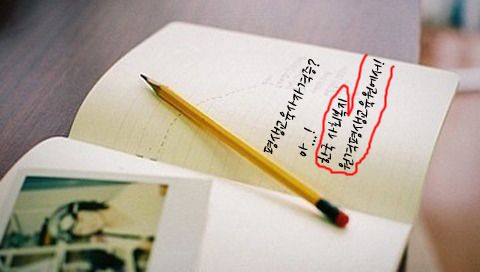 평생교육사자격증?
아...!
한국 사회복지
원격평생교육원에서!